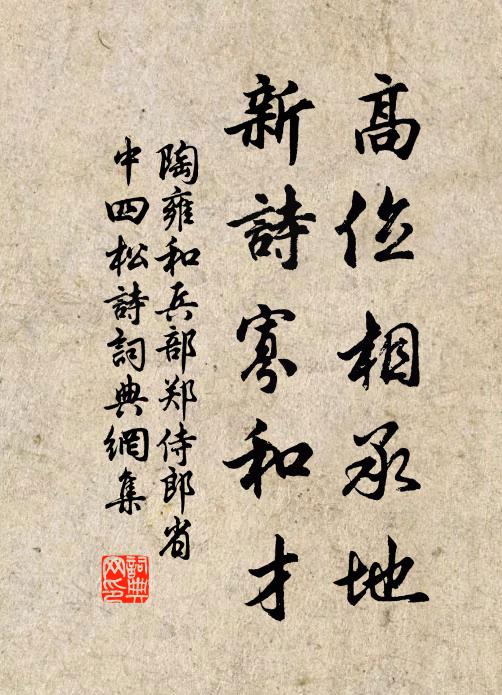 高位相承地
新詩寡和才
陶雍和兵部郑侍郎省
中四松詩詞典網集
詞典网印